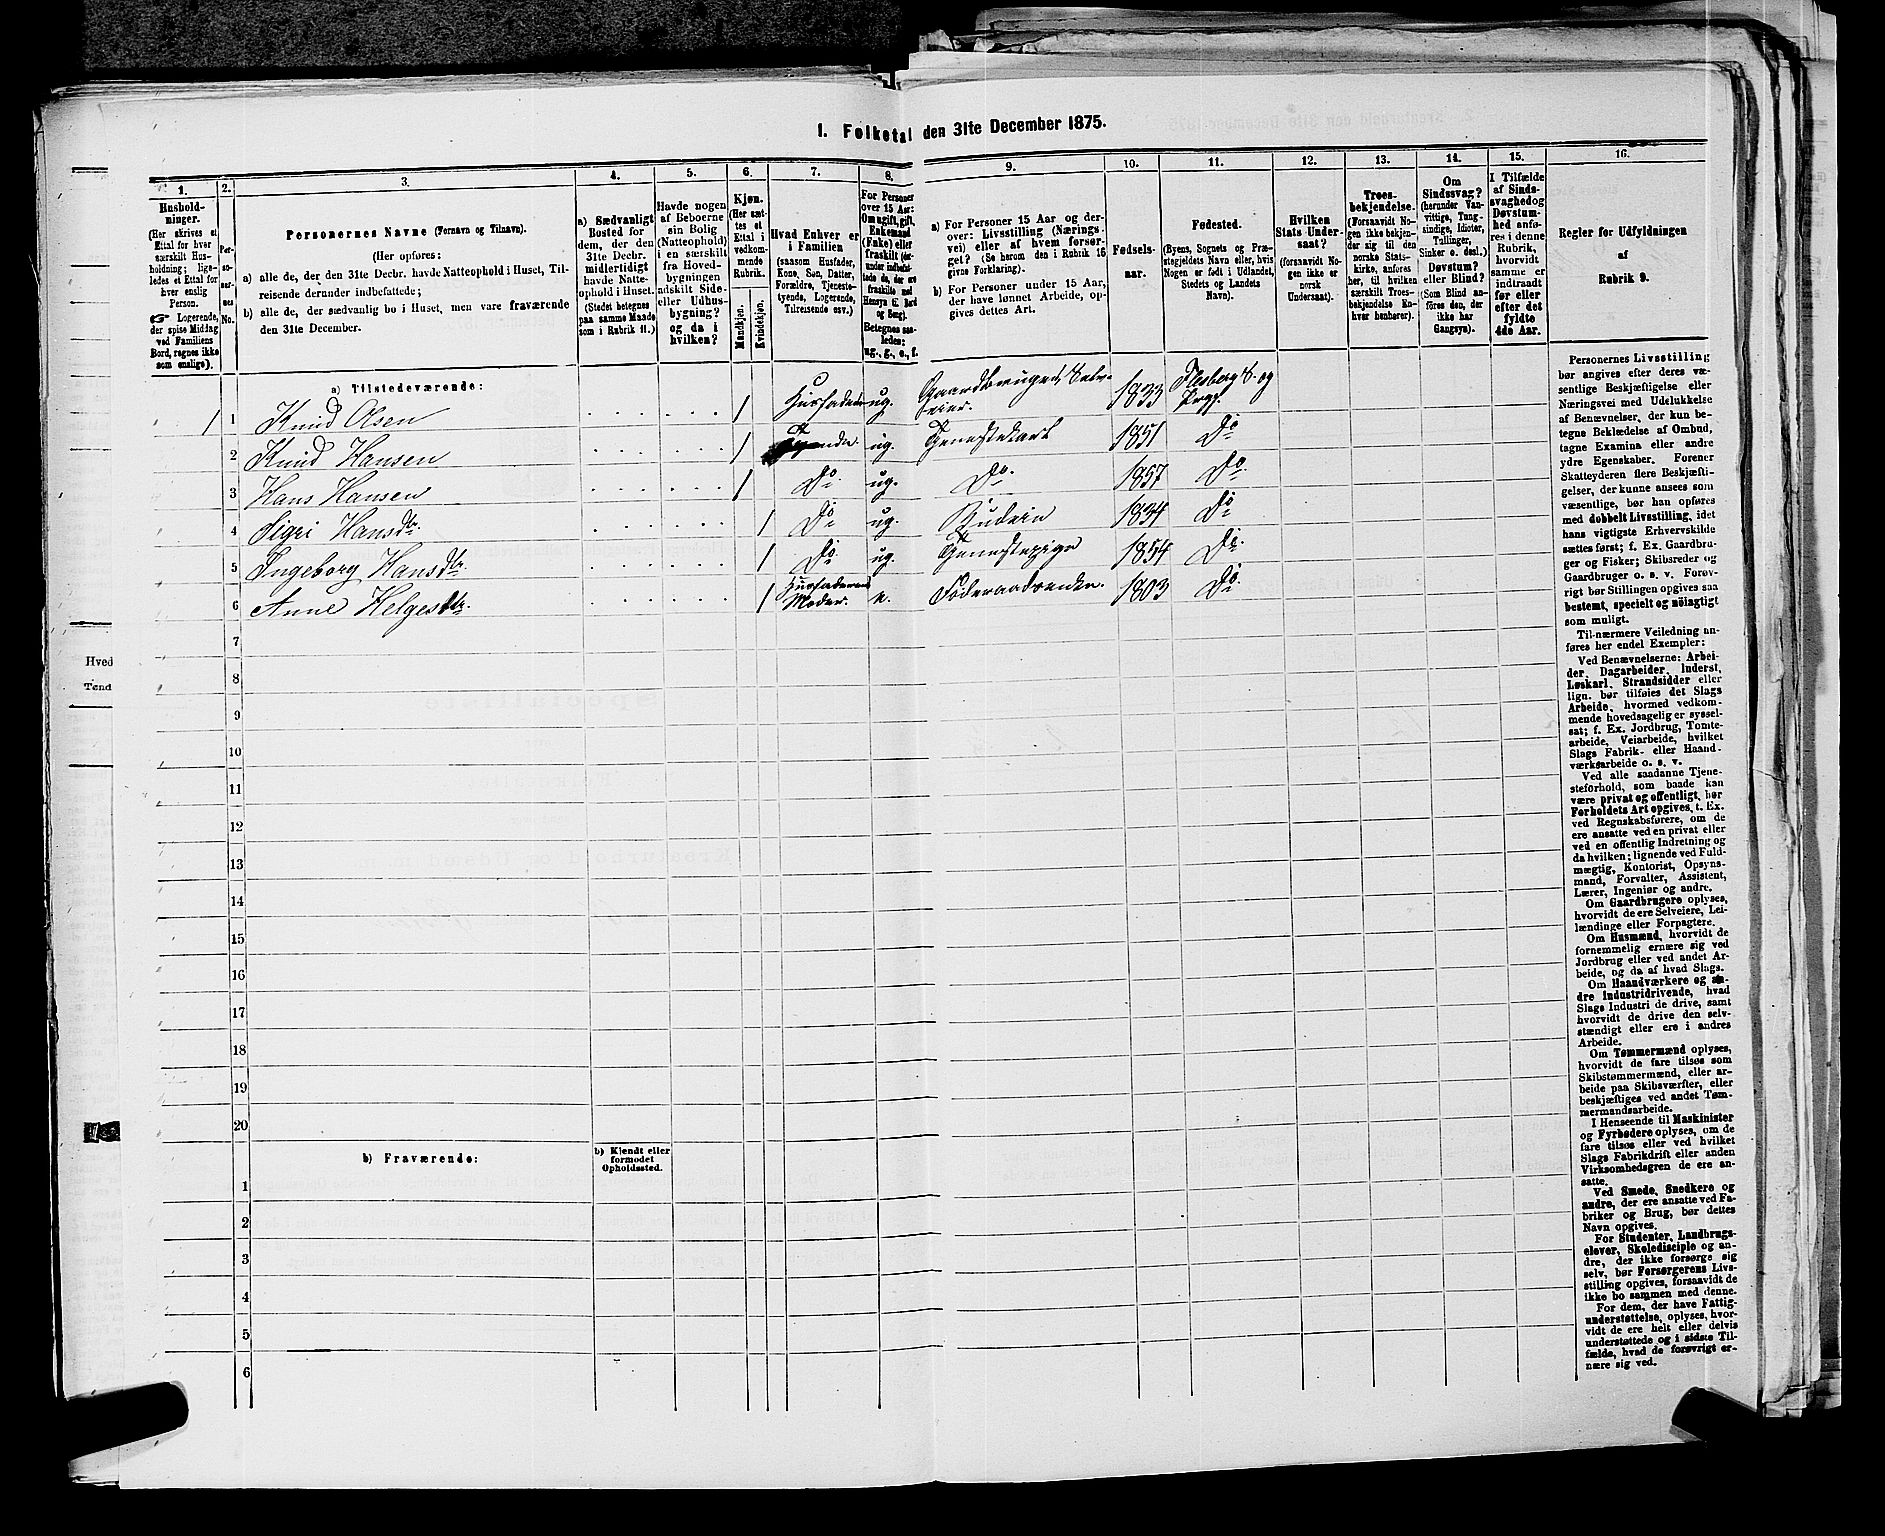 1. Folketal den 31te December 1875.
1. 2. 3. 4. 5. 6. 7. 8. 9. 10. 11. 12. 13. 14. 15. 16.
Hushold-
ninger.
(Her skrives et
Ettal for hver
særskilt Hus-
holdning; lige-
ledes et Ettal for
hver enslig
Person.
☞ Logerende,
der spise Middag
ved Familiens
Bord, regnes ikke
som enslige).
Per-
so-
ner-
nes
No.
Personernes Navne (Fornavn og Tilnavn).
(Her opføres:
a) alle de, der den 31te Decbr. havde Natteophold i Huset, Til-
reisende derunder indbefattede;
b) alle de, der sædvanlig bo i Huset, men vare fraværende
den 31te December.
a) Sædvanligt
Bosted for
dem, der den
31te Decbr.
midlertidigt
havde Natte-
ophold i Huset.
(Stedet betegnes
paa samme Maade
som i Rubrik 11.)
Havde nogen
af Beboerne
sin Bolig
(Natteophold)
i en særskilt
fra Hoved-
bygningen
adskilt Side-
eller Udhus-
bygning?
og da i
hvilken?
Kjøn.
(Her sæt-
tes et
Ettal i
vedkom-
mende
Rubrik.
Mandkjøn.
Kvindekjøn.
Hvad Enhver er
i Familien
(saasom Husfader,
Kone, Søn, Datter,
Forældre, Tjeneste-
tyende, Logerende,
Tilreisende osv.)
For Personer
over 15 Aar:
Om ugift, gift,
Enkemand
(Enke) eller
fraskilt (der-
under indbefat-
tede de, der ere
fraskilte med
Hensyn til Bord
og Seng).
Betegnes saa-
ledes:
ug., g., e., f.
a) For Personer 15 Aar og der-
over: Livsstilling (Nærings-
vei) eller af hvem forsør-
get? (Se herom den i Rubrik 16
givne Forklaring).
b) For Personer under 15 Aar,
der have lønnet Arbeide, op-
gives dettes Art.
Fødsels-
aar.
Fødested.
(Byens, Sognets og Præ-
stegjeldets Navn eller, hvis
Nogen er født i Udlandet,
Stedets og Landets
Navn).
Hvilken
Stats Under-
saat?
(forsaavidt No-
gen ikke er
norsk
Undersaat).
Troes-
bekjendelse.
(Forsaavidt No-
gen ikke bekjen-
der sig til den
norske Stats-
kirke, anføres
her, til hvilken
særskilt Troes-
bekjendelse En-
hver henhører).
Om
Sindssvag?
(herunder Van-
vittige, Tung-
sindige, Idioter,
Tullinger,
Sinker o. desl.)
Døvstum?
eller Blind?
(Som Blind an-
føres den, der
ikke har
Gangsyn).
I Tilfælde
af Sinds-
svaghed og
Døvstum-
hed anfø-
res i denne
Rubrik,
hvorvidt
samme er
indtraadt
før eller
efter det
fyldte
4de Aar.
Regler for Udfyldningen
af
Rubrik 9.
a) Tilstedeværende:
1 1 Knud Olsen 1 Husfader ug. Gaardbruger, Selv-
eier. 1833 Flesberg S. og
Prgj.
2 Knud Hansen 1 ug. Tjenestekarl 1851 Do
3 Hans Hansen 1 Do ug. Do. 1857 Do
4 Sigri Hansdtr. 1 Do ug. Budeie 1834 Do
5 Ingeborg Hansdtr. 1 Do ug. Tjenestepige 1854 Do.
6 Anne Helgesdtr. 1 Husfaderens
Moder. e. Føderaadsenke. 1803 Do.
7
8
9
10
11
12
13
14
15
16
17
18
19
20
b) Fraværende:
b) Kjendt eller
formodet
Opholdssted.
1
2
3
4
5
6
Personernes Livsstilling
bør angives efter deres væ-
sentlige Beskjæftigelse eller
Næringsvei med Udelukkelse
af Benævnelser, der kun be-
tegne Beklædelse af Ombud,
tagne Examina eller andre
ydre Egenskaber. Forener
Skatteyderen flere Beskjæfti-
gelser, der kunne ansees som
væsentlige, bør han opføres
med dobbelt Livsstilling, idet
hans vigtigste Erhvervskilde
sættes først; f. Ex. Gaardbru-
ger og Fisker; Skibsreder og
Gaardbruger o. s. v. Forøv-
rigt bør Stillingen opgives saa
bestemt, specielt og nöiagtigt
som muligt.
Til nærmere Veiledning an-
føres her endel Exempler:
Ved Benævnelserne: Arbei-
der, Dagarbeider, Inderst,
Løskarl, Strandsidder eller
lign. bør tilføies det Slags
Arbeide, hvormed vedkom-
mende hovedsagelig er syssel-
sat; f. Ex. Jordbrug, Tomte-
arbeide, Veiarbeide, hvilket
Slags Fabrik- eller Haand-
værksarbeide o. s. v.
Ved alle saadanne Tjene-
steforhold, som baade kan
være privat og offentligt, bør
Forholdets Art opgives, t. Ex.
ved Regnskabsførere, om de
ere ansatte ved en privat eller
ved en offentlig Indretning og
da hvilken; lignende ved Fuld-
mægtig, Kontorist, Opsyns-
mand, Forvalter, Assistent,
Lærer, Ingeniør og andre.
Om Gaardbrugere oplyses,
hvorvidt de ere Selveiere, Lei-
lændinge eller Forpagtere.
Om Husmænd, hvorvidt de
fornemmelig ernære sig ved
Jordbrug eller ved andet Ar-
beide, og da af hvad Slags.
Om Haandværkere og an-
dre Industridrivende, hvad
Slags Industri de drive, samt
hvorvidt de drive den selv-
stændigt eller ere i andres
Arbeide.
Om Tømmermænd oplyses,
hvorvidt de fare tilsøs som
Skibstømmermænd, eller ar-
beide paa Skibsværfter, eller
beskjæftiges ved andet Tøm-
mermandsarbeide.
I Henseende til Maskinister
og Fyrbødere oplyses, om de
fare tilsøs eller ved hvilket
Slags Fabrikdrift eller anden
Virksomhedsgren de ere an-
satte.
Ved Smede, Snedkere og
andre, der ere ansatte ved Fa-
briker og Brug, bør dettes
Navn opgives.
For Studenter, Landbrugs-
elever, Skoledisciple og an-
dre, der ikke forsørge sig
selv, bør Forsørgerens Livs-
stilling opgives, forsaavidt de
ikke bo sammen med denne.
For dem, der have Fattig-
understøttelse, oplyses, hvor-
vidt de ere helt eller delvis
understøttede og i sidste Til-
fælde, hvad de forøvrigt er-
nære sig ved.
Hved
Tønd